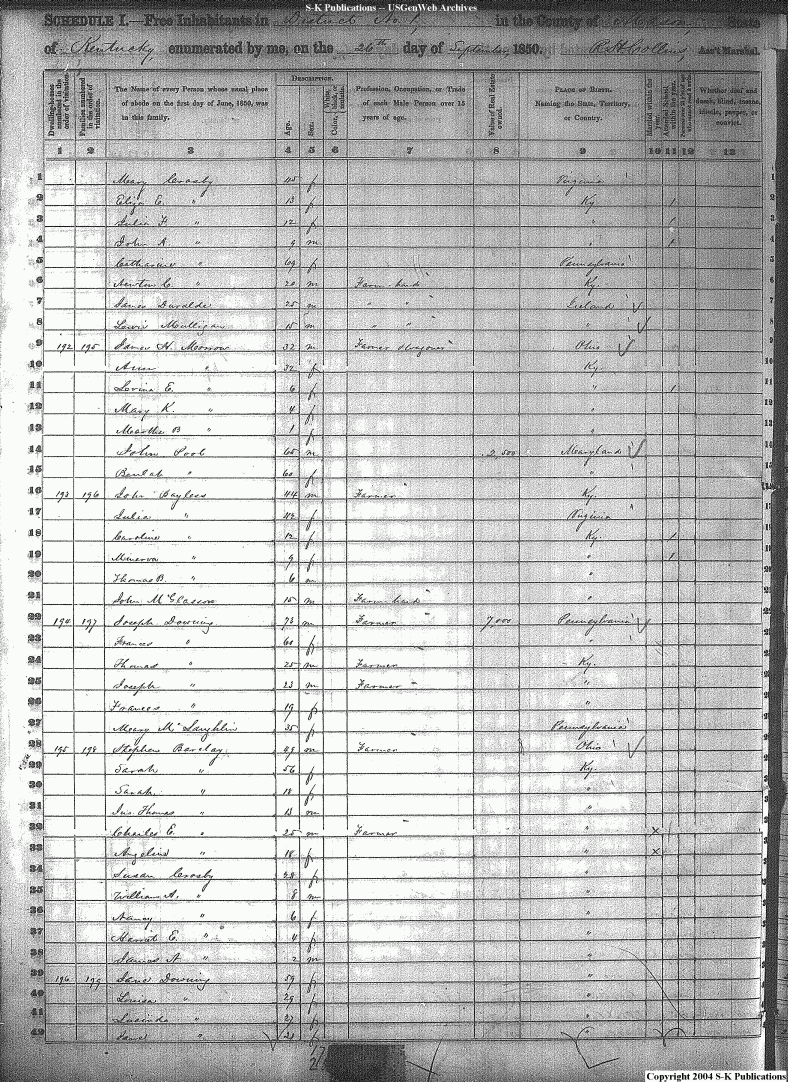 S-K Publications -- USGenWeb Archives
SCHEDULE I.—Free Inhabitants in District No. 1, in the County of Mason State
of Kentucky, enumerated by me, on the 26th day of September, 1850. Ass't Marshal.
Dwelling-houses numbered in the order of visitation.
Families numbered in the order of visitation.
The Name of every Person whose usual place of abode on the first day of June, 1850, was in this family.
DESCRIPTION.
Age.
Sex.
Color, White, black, or mulatto.
Profession, Occupation, or Trade of each Male Person over 15 years of age.
Value of Real Estate owned.
PLACE OF BIRTH. Naming the State, Territory, or Country.
Married within the year.
Attended School within the year.
Whether deaf and dumb, blind, insane, idiotic, pauper, or convict.
1 2 3 4 5 6 7 8 9 10 11 12 13
1 Mary Crosby 45 f Virginia
2 Eliza E. " 13 f Ky. 1
3 Julia F. " 12 f " 1
4 John A. " 9 m " 1
5 Catharine " 69 f Pennsylvania
6 Newton C. " 20 m Farm hand Ky.
7 James 25 m " " Ireland
8 Lewis Mulligan 15 m " " "
9 192 195 James H. Morrow 32 m Ohio
10 Ann " 32 f Ky.
11 E. " 6 f " 1
12 Mary K. " 4 f "
13 Martha B " 1 f "
14 John 65 m 2,500 Maryland
15 Beulah " 60 f "
16 193 196 John Bayless 44 m Farmer Ky.
17 Julia " f Virginia
18 Caroline " 12 f Ky. 1
19 Minerva " 9 f " 1
20 Thomas B. " 6 m "
21 John McGlasson 15 m Farm hand "
22 194 197 Joseph Downing 73 m Farmer 7,000 Pennsylvania
23 Frances " 60 f "
24 Thomas " 25 m Farmer Ky.
25 Joseph " 23 m Farmer "
26 Frances " 19 f "
27 Mary McLaughlin 35 f Pennsylvania
28 195 198 Stephen Barclay m Farmer Ohio
29 Sarah " 56 f Ky.
30 Sarah " 18 f "
31 Thomas " 13 m "
32 Charles E. " 25 m Farmer " x
33 Angeline " 18 f " x
34 Susan Crosby 28 f "
35 William A. " 8 m "
36 Nancy " 6 f "
37 Harriet E. " 4 f "
38 James A. " 2 m "
39 196 199 Jane Downing 59 f "
40 Louisa " 29 f "
41 Lucinda " 27 f "
42 Jane " f "
Copyright 2004 S-K Publications